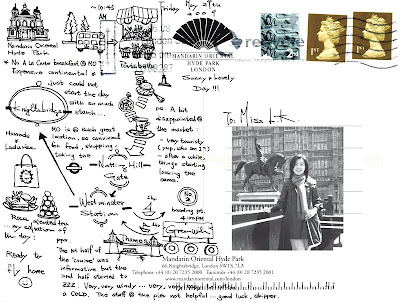 Mandarin Oriental
Hyde Park
~ 10:45
AM
Friday
May 29th
2009
* No A La Carte breakfast @ MO
Expensive continental
I just could not
start the day
with so much
starch...
Portobello
MANDARIN ORIENTAL
HYDE PARK
LONDON
Sunny & lovely
Day !!!
1ST
1ST
To: Miss
Knightsbridge
Harrods
&
Laduree
MO is @ such great
location, so convenient
for food, shopping &
taking the
ps. A bit
disappointed @
the market:
- very touristy
(yup, who am I?)
- after a while,
things starting
looking the
same.
Notting
Hill
Gate
Westminster
Station
No
2
boarding pt.
4:10 PM
Thames
Greenwich
Rose
my equation of
UK day:
Ready to
fly home
pps.
The 1st half of
the 'cruise' was
informative but the
2nd half started to
ZZZ. Very windy... very, very
a COLD. The staff @ the pier not helpful... good luck, skipper.
Mandarin Oriental Hyde Park
66 Knightsbridge, London SW1X 7LA
Telephone +44 (0) 20 7235 2000 Facsimile +44 (0) 20 7235 2001
www.mandarinoriental.com/london